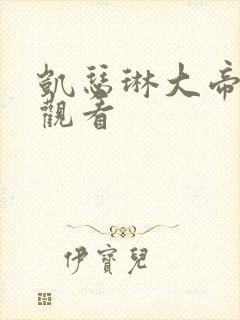 凱瑟琳大帝
觀者
伊寶兒